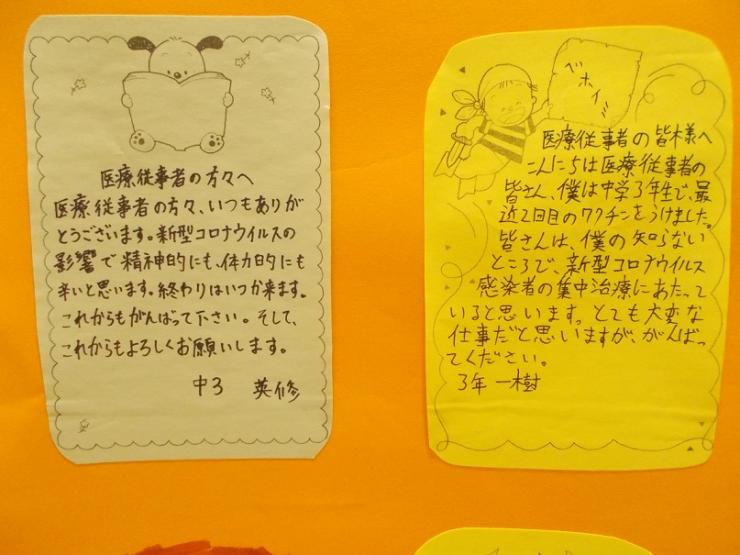 医療従事者の方々へ
医療従事者の方々、いつもありが
とうございます。新型コロナウイルスの
影響で精神的にも、体力的にも
辛いと思います。終わりはいつか来ます。
これからもがんばって下さい。そして、
これからもよろしくお願いします。
中3 英修
ベホイミ
医療従事者の皆様へ
こんにちは医療従事者の
皆さん、僕は中学3年生で、最
近2回目のワクチンをうけました。
皆さんは、僕の知らない
ところで、新型コロナウイルス
感染者の集中治療にあたって
いると思います。とても大変な
仕事だと思いますが、がんばっ
てください。
3年 一樹